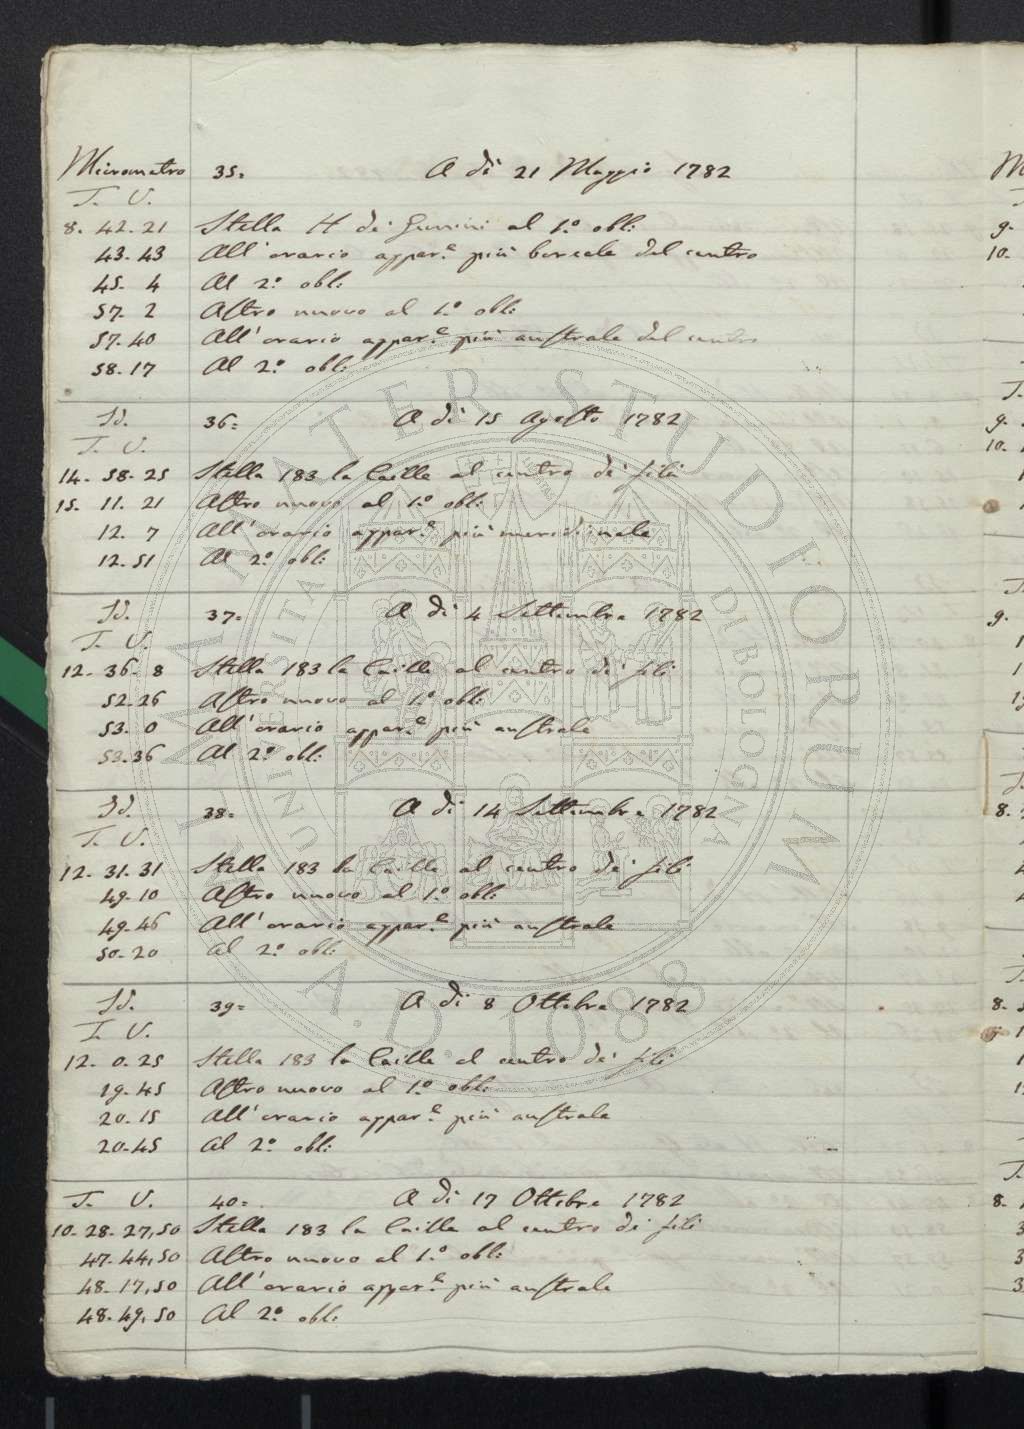 Micrometro 35. A di 21 Maggio 1782
T. V.
8. 42. 21 Stella H de' Gemini al 1.º obl:
43. 43 All' orario appar.e più boreale del centro
45. 4 Al 2.º obl:
57. 2 Astro nuovo al 1.º obl:
57. 40 All' orario appar.e più australe del centro
58. 17 Al 2.º obl:
Id. 36. A di 15 Agosto 1782
T. V.
14. 58. 25 Stella 183 la Caille al centro de' fili
15. 11. 21 Astro nuovo al 1.º obl:
12. 7 All' orario appar.e più meridionale
12. 51 Al 2.º obl:
Id. 37. A di 4 Settembre 1782
T. V.
12. 36. 8 Stella 183 la Caille al centro de' fili
52. 26 Astro nuovo al 1.º obl:
53. 0 All' orario appar.e più australe
53. 36 Al 2.º obl:
Id. 38. A di 14 Settembre 1782
T. V.
12. 31. 31 Stella 183 la Caille al centro de' fili
49. 10 Astro nuovo al 1.º obl:
49. 46 All' orario appar.e più australe
50. 20 Al 2.º obl:
Id. 39. A di 8 Ottobre 1782
T. V.
12. 0. 25 Stella 183 la Caille al centro de' fili
19. 45 Astro nuovo al 1.º obl:
20. 15 All' orario appar.e più australe
20. 45 Al 2.º obl:
T. V. 40. A di 17 Ottobre 1782
10. 28. 27,50 Stella 183 la Caille al centro di fili
47. 44,50 Altro nuovo al 1.º obl:
48. 17,50 All' orario appar.e più australe
48. 49,50 Al 2.º obl:
ALMA MATER STUDIORUM
A.D. 1088
UNIVERSITA DI BOLOGNA